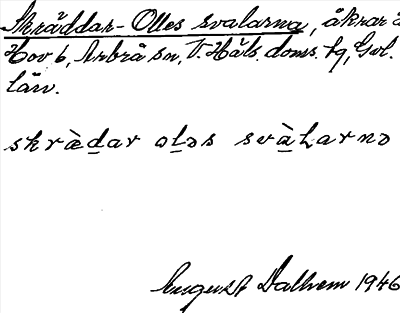 Skräddar-Olles svalarna, åkrar å
Hov 6, Arbrå sn, V. Häls. doms. fq, Gvl.
län.
skràdar oləs svàLarnə
August Dalhem 1946